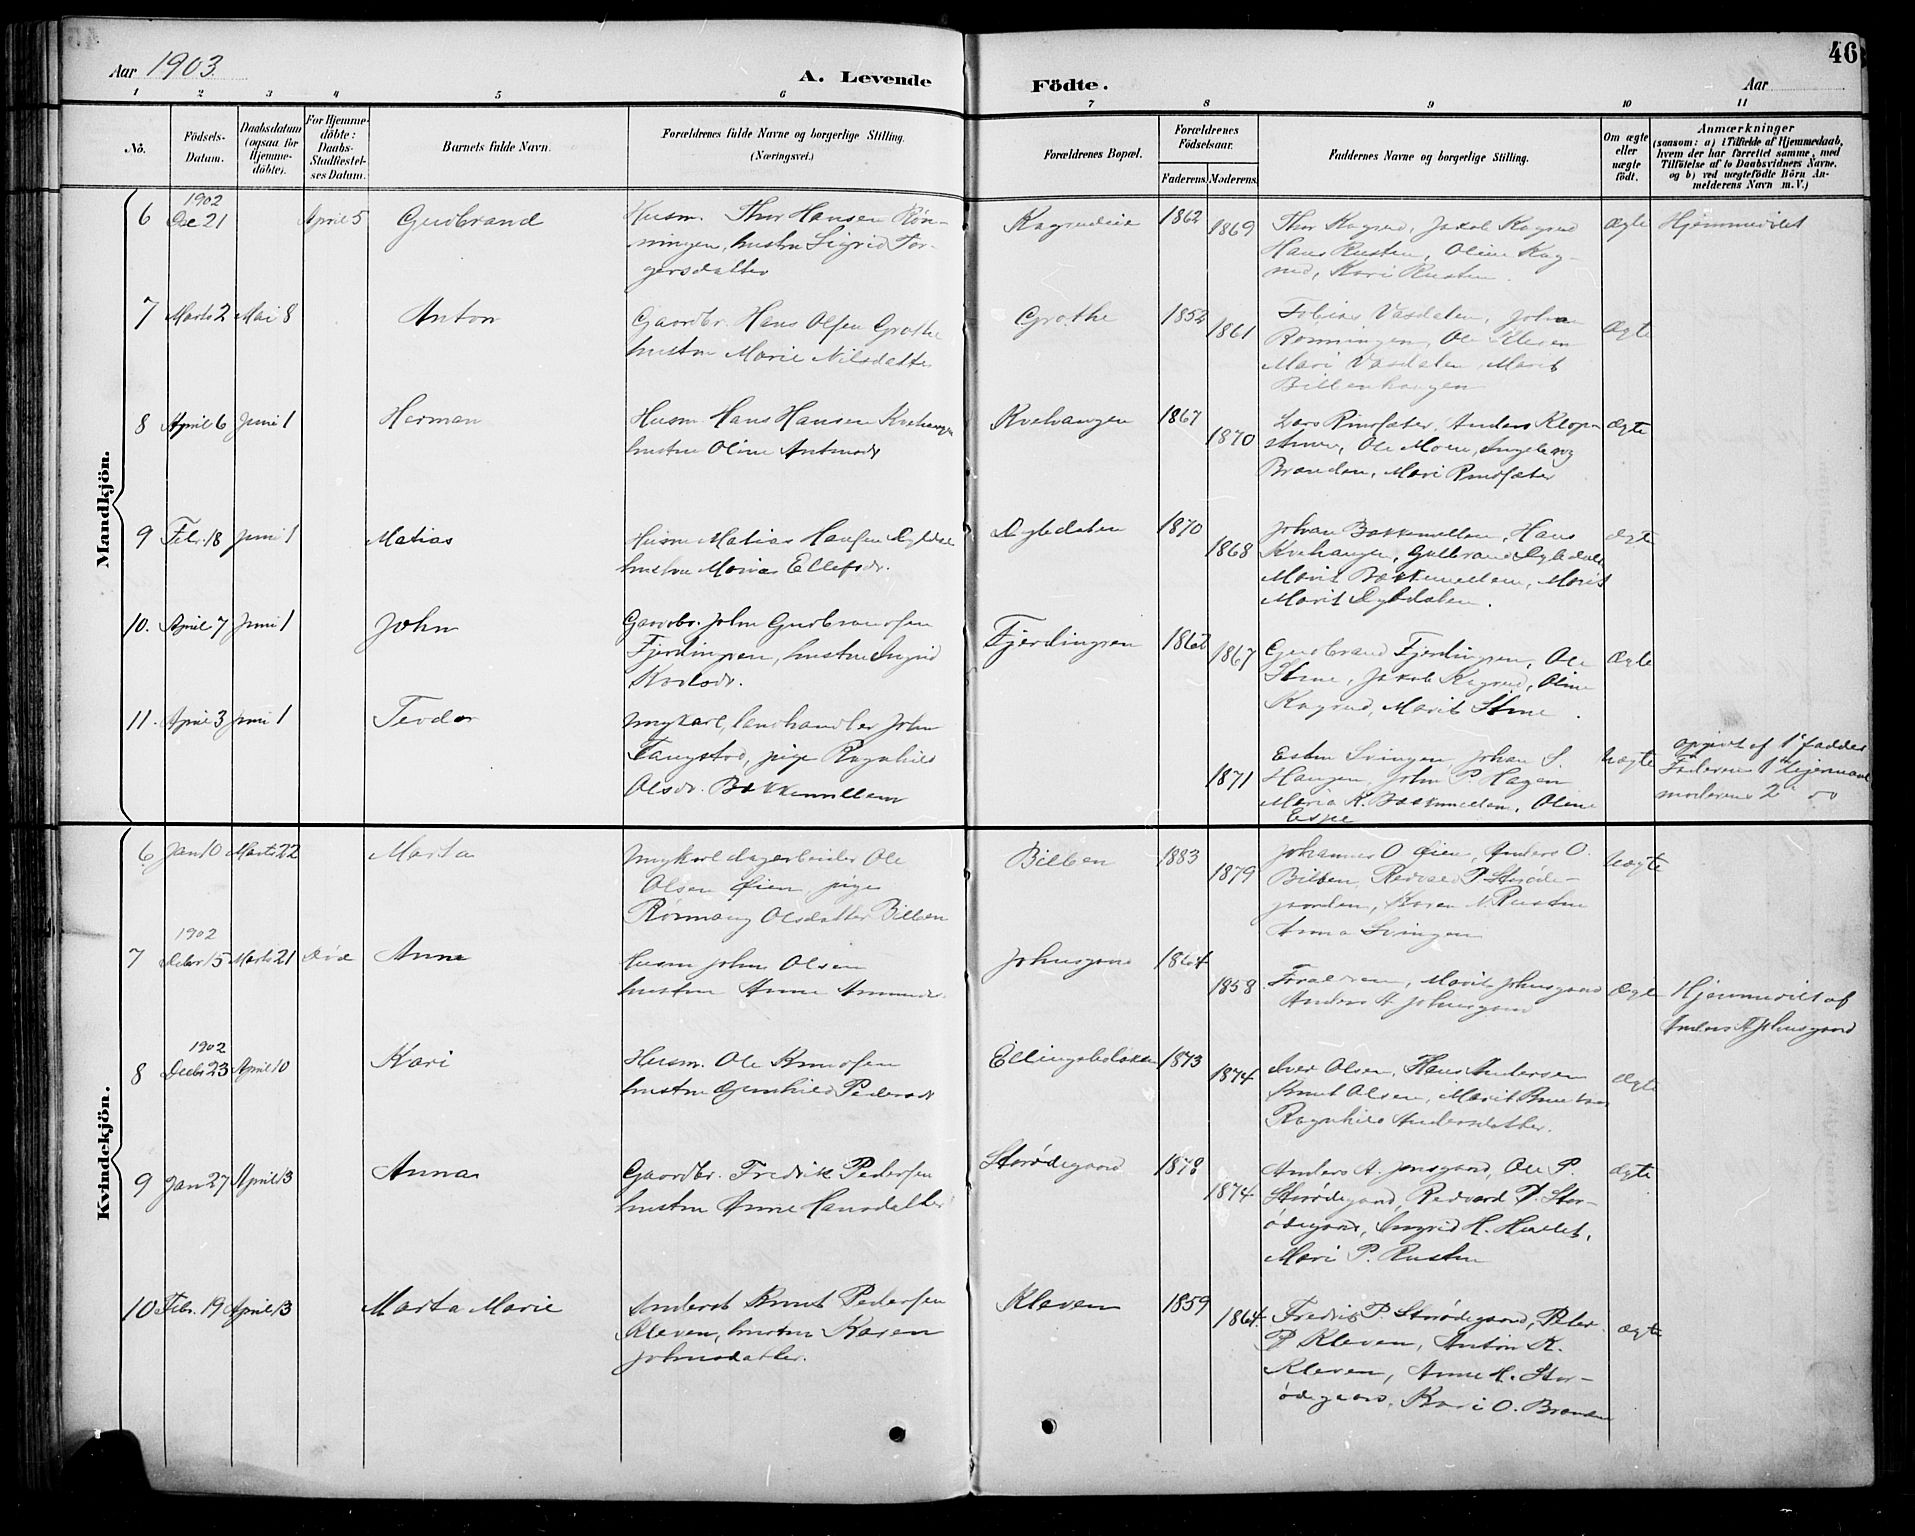 46
Aar 1903
A. Levende
Födte.
Aar
1 2 3 4 5 6 7 8 9 10 11
No.
Födsels-
Datum.
Daabsdatum
(ogsaa for
Hjemme-
döbte).
For Hjemme-
döbte:
Daabs-
Stadfæstel-
ses Datum.
Barnets fulde Navn.
Forældrenes fulde Navne og borgerlige Stilling.
(Næringsvei.)
Forældrenes Bopæl.
Forældrenes
Födselsaar.
Faderens. Moderens.
Faddernes Navne og borgerlige Stilling.
Om ægte
eller
uægte
födt.
Anmærkninger
(saasom: a) i Tilfælde af Hjemmedaab,
hvem der har forrettet samme, med
Tilföielse af to Daabsvidners Navne,
og b) ved uægtefödte Börn An-
melderens Navn m. V.)
Mandkjön.
1902
6 Dec 21 April 5 Gudbrand
Husm. Thor Hansen Røn-
ningen, hustru Sigrid Tor-
gersdatter
Kagrudeie 1862 1869
Thor Kagrud, Jakob Kagrud
Hans Rusten, Oline Kag-
rud, Kari Rusten.
Ægte Hjemmedøbt
7 Marts 2 Mai 8 Anton
Gaardbr. Hans Olsen Grothe
hustru Marie Nilsdatter
Grothe 1852 1861
Tobias Vasdalen, Johan
Rønningen, Ole Kleven
Mari Vasdalen, Marit
Bilbenhaugen
Ægte
8 April 6 Juni 1 Herman
Husm. Hans Hansen Kvehaugen
hustru Oline Antonsdr
Kvehaugen 1867 1870
Lars Rindsæter, Anders Klop-
Ole Moen, Ingeborg
Brænden, Mari Rindsæter
Ægte
9 Febr. 18 Juni 1 Matias
Husm Matias Hansen Dybdal
hustru Maria Ellefsdr.
Dybdalen 1870 1868
Johan Bakkemellem, Hans
Kvehaugen, Gulbrand Dybdalen
Marit Bakkemellem, Marit
Marit Dybdalen.
Ægte
10. April 7 Juni 1 John
Gaardbr. John Gudbrandsen
Fjerdingren, hustru Ingrid
Karlsdr.
Fjerdingren 1862 1867
Gudbrand Fjerdingren, Ole
Stene, Jakob Kagrud, Oline
Kagrud, Marit Stene.
Ægte
11. April 3 Juni 1 Teodor
Ungkarl, landhandler John
Tangstad, pige Ragnhild
Olsdr. Bakkemellem
1871
Esten Svingen, Johan S.
Haugen, John P. Hagen
Maria K. Bakkemellem, Oline
Espe
Uægte
opgivet af 1ste fadder
Faderens 1ste leiermaal
moderens 2det do
Kvindekjön.
6 Jan 10 Marts 22 Marta
Ungkarl dagarbeider Ole
Olsen Øien, pige
Rønnaug Olsdatter Bilben
Bilben 1883 1879
Johannes O Øien, Anders O.
Bilben, Redvard P Storøde-
gaarden, Karen N. Rusten
Anna Svingen
Uægte
1902
7 Decbr 15 Marts 21 Død Anne
Husm John Olsen
hustru Anne Amundsdr.
Johnsgaard 1864 1858
Forældrene, Marit Johnsgaard
Anders A Johnsgaard
Ægte
Hjemmedøbt af
Anders A Johnsgaard
1902
8 Decbr 23 April 10 Kari
Husm. Ole Knudsen
hustru Gunhild Pedersdr
Ellingsbølokken 1873 1874
Iver Olsen, Hans Andersen
Knut Olsen, Marit
Ragnhild Andersdatter.
Ægte
9 Jan 27 April 13 Anna
Gaardbr. Fredrik Pedersen
hustru Anne Hansdatter
Storødegaard 1878 1874
Anders A. Jonsgaard, Ole P.
Storødegaard, Redvard P. Stor-
ødegaard, Ingrid H. Hullet,
Mari P. Rusten
Ægte
10 Febr. 19 April 13 Marta Marie
Inderst Knut Pedersen
Kleven, hustru Karen
Johnsdatter.
Kleven 1859 1864
Fredrik P. Storødegaard, Peder
P Kleven, Anton K.
Kleven, Anne H. Stor-
ødegaard, Kari O. Brænden
Ægte